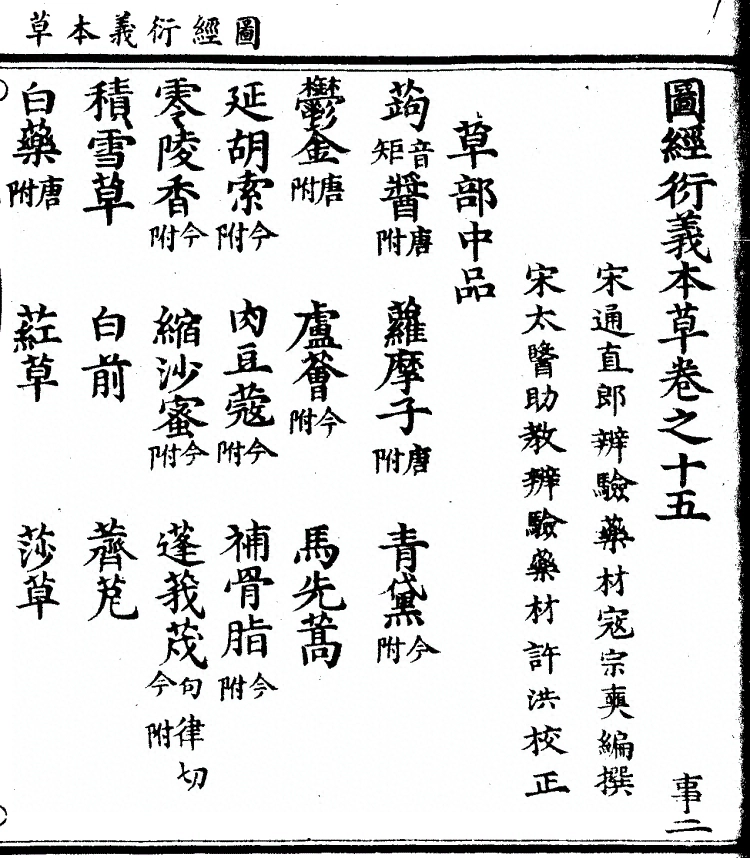 圖經衍義本草
圖經衍義本草卷之十五
事二
宋通直郎辨驗藥材寇宗奭編撰
宋太醫助教辨驗藥材許洪校正
草部中品
蒟音矩醬唐附 蘿摩子唐附 青黛今附
鬱金唐附 盧薈今附 馬先蒿
延胡索今附 肉豆蔻今附 補骨脂今附
零陵香今附 縮沙蜜今附 蓬莪茂旬律切今附
積雪草 白前 薺苨
白藥唐附 葒草 莎草